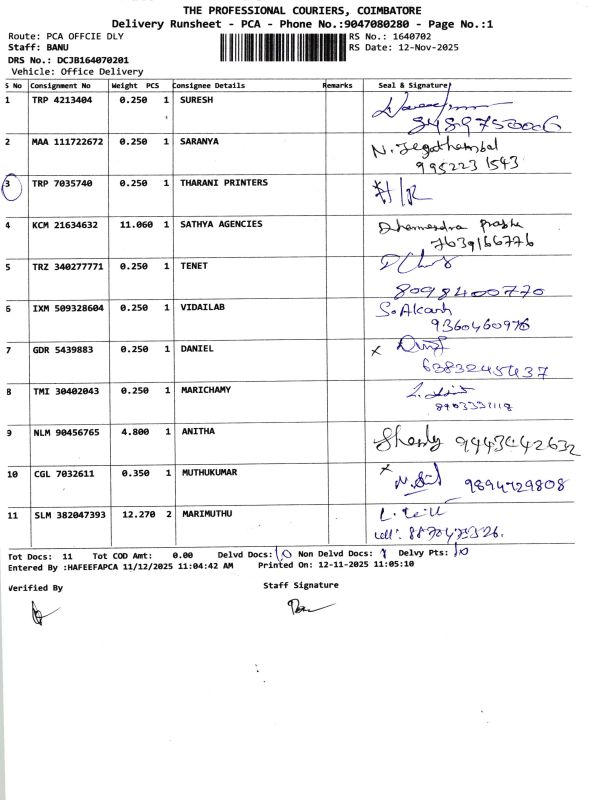 THE PROFESSIONAL COURIERS, COIMBATORE
Delivery Runsheet - PCA - Phone No.:9047080280 - Page No.:1
Route: PCA OFFCIE DLY RS No.: 1640702
Staff: BANU RS Date: 12-Nov-2025
DRS No.: DCJB164070201
Vehicle: Office Delivery
S No Consignment No Weight PCS Consignee Details Remarks Seal & Signature
1 TRP 4213404 0.250 1 SURESH
2 MAA 111722672 0.250 1 SARANYA N. Jegathambal
9952231543
3 TRP 7035740 0.250 1 THARANI PRINTERS
4 KCM 21634632 11.060 1 SATHYA AGENCIES Dharmendra Prabhu
7639166776
5 TRZ 340277771 0.250 1 TENET
8098400770
6 IXM 509328604 0.250 1 VIDAILAB S. Akash
9360460976
7 GDR 5439883 0.250 1 DANIEL x
6383245437
8 TMI 30402043 0.250 1 MARICHAMY
9 NLM 90456765 4.800 1 ANITHA 9443442632
10 CGL 7032611 0.350 1 MUTHUKUMAR x
9894729808
11 SLM 382047393 12.270 2 MARIMUTHU
cell:
Tot Docs: 11 Tot COD Amt: 0.00 Delvd Docs: 10 Non Delvd Docs: 1 Delvy Pts: 10
Entered By :HAFEEFAPCA 11/12/2025 11:04:42 AM Printed On: 12-11-2025 11:05:10
Verified By Staff Signature